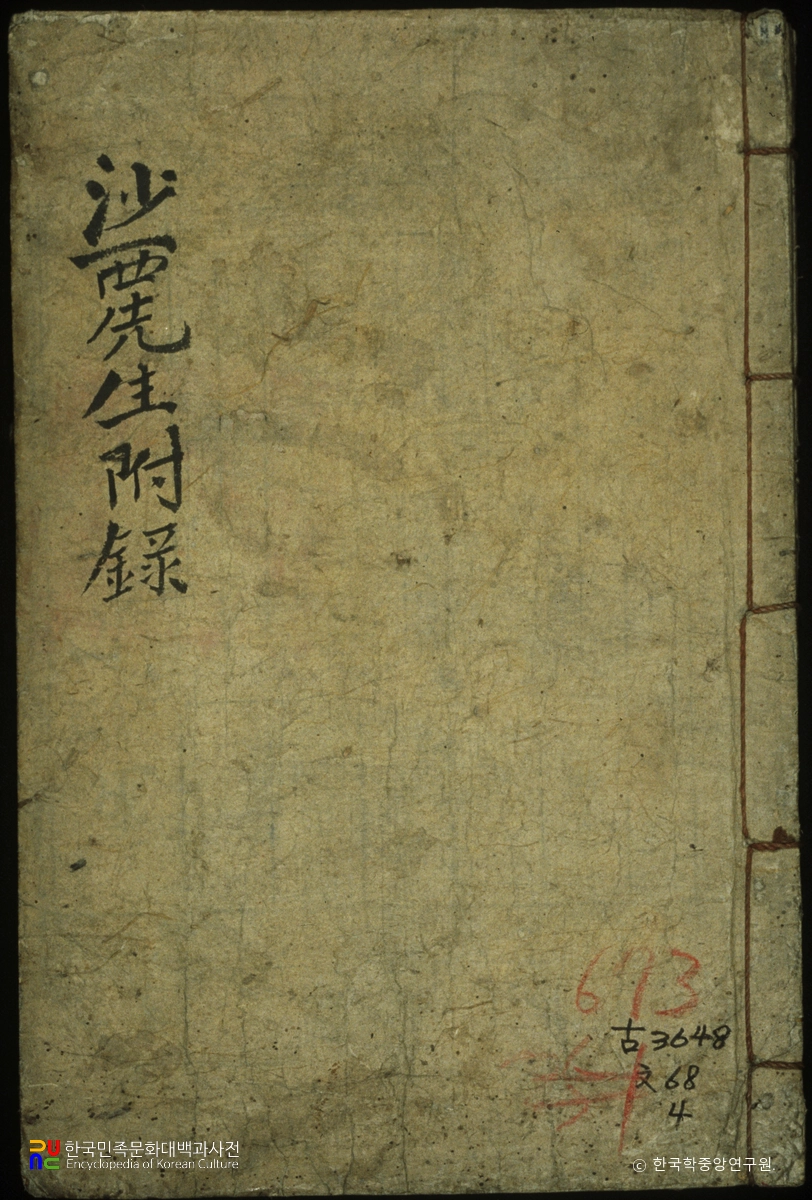 沙西先生附錄
673
古3648
文68
4
한국민족문화대백과사전
Encyclopedia of Korean Culture
© 한국학중앙연구원